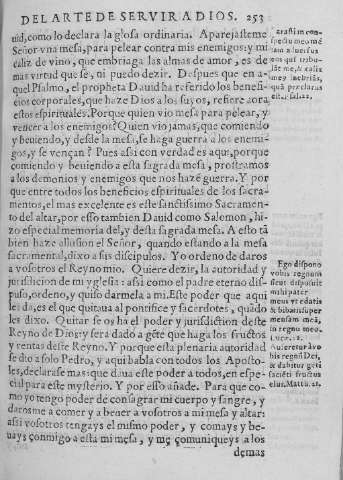 DEL ARTE DE SERVIR A DIOS. 253
uid, como lo declara la glosa ordinaria. Aparejasteme
Señor vna mesa, para pelear contra mis enemigos: y mi
caliz de vino, que embriaga las almas de amor, es de
mas virtud que se, ni puedo dezir. Despues que en a-
quel Psalmo, el propheta Dauid ha referido los benefi-
cios corporales, que haze Dios a los suyos, refiere aora
estos espirituales. Porque quien vio mesa para pelear, y
vencer a los enemigos? Quien vio jamas, que comiendo
y beuiendo, y desde la mesa, se haga guerra a los enemi-
gos, y se vençan? Pues assi con verdad es aqui, porque
comiendo y beuiendo a esta sagrada mesa, prostramos
a los demonios y enemigos que nos hazẽ guerra. Y por
que entre todos los beneficios espirituales de los sacra-
mentos, el mas excelente es este sanctissimo Sacramen-
to del altar, por esso tambien Dauid como Salomon, hi-
zo especial memoria del, y desta sagrada mesa. A esto tã
bien haze allusion el Señor, quando estando a la mesa
sacramental, dixo a sus discipulos. Yo ordeno de daros
a vosotros el Reyno mio. Quiere dezir, la autoridad y
jurisdicion de mi yglesia: assi como el padre eterno dis-
puso, ordeno, y quiso darmela a mi. Este poder que aqui
les da, es el que quitaua al pontifice y sacerdotes, quãdo
les dixo. Quitar se os ha el poder y jurisdiction deste
Reyno de Dios: y sera dado a gẽte que haga los fructos
y rentas deste Reyno. Y porque esta plenaria autoridad
se dio a solo Pedro, y aqui habla con todos los Aposto-
les, declarase mas: que daua este poder a todos, en espe-
cial para este mysterio. Y por esso añade. Para que co-
mo yo tengo poder de consagrar mi cuerpo y sangre, y
darosme a comer y a beuer a vosotros a mi mesa y altar:
assi vosotros tengays el mismo poder, y comays y be-
uays conmigo a esta mi mesa, y me comuniqueys a los
demas
arasti in con-
spectu meo mẽ
sam aduersus
eos qui tribu-
lãt me, & calix
meus inebriãs,
quã præclarus
est. Psal. 22.
Ego dispono
vobis regnum
sicut disposuit
mihi pater
meus vt edatis
& bibatis super
mensam meã,
in regno meo.
Luc. 22.
Auferetur à vo
bis regnũ Dei,
& dabitur gẽti
faciẽti fructus
eius, Matth. 21.